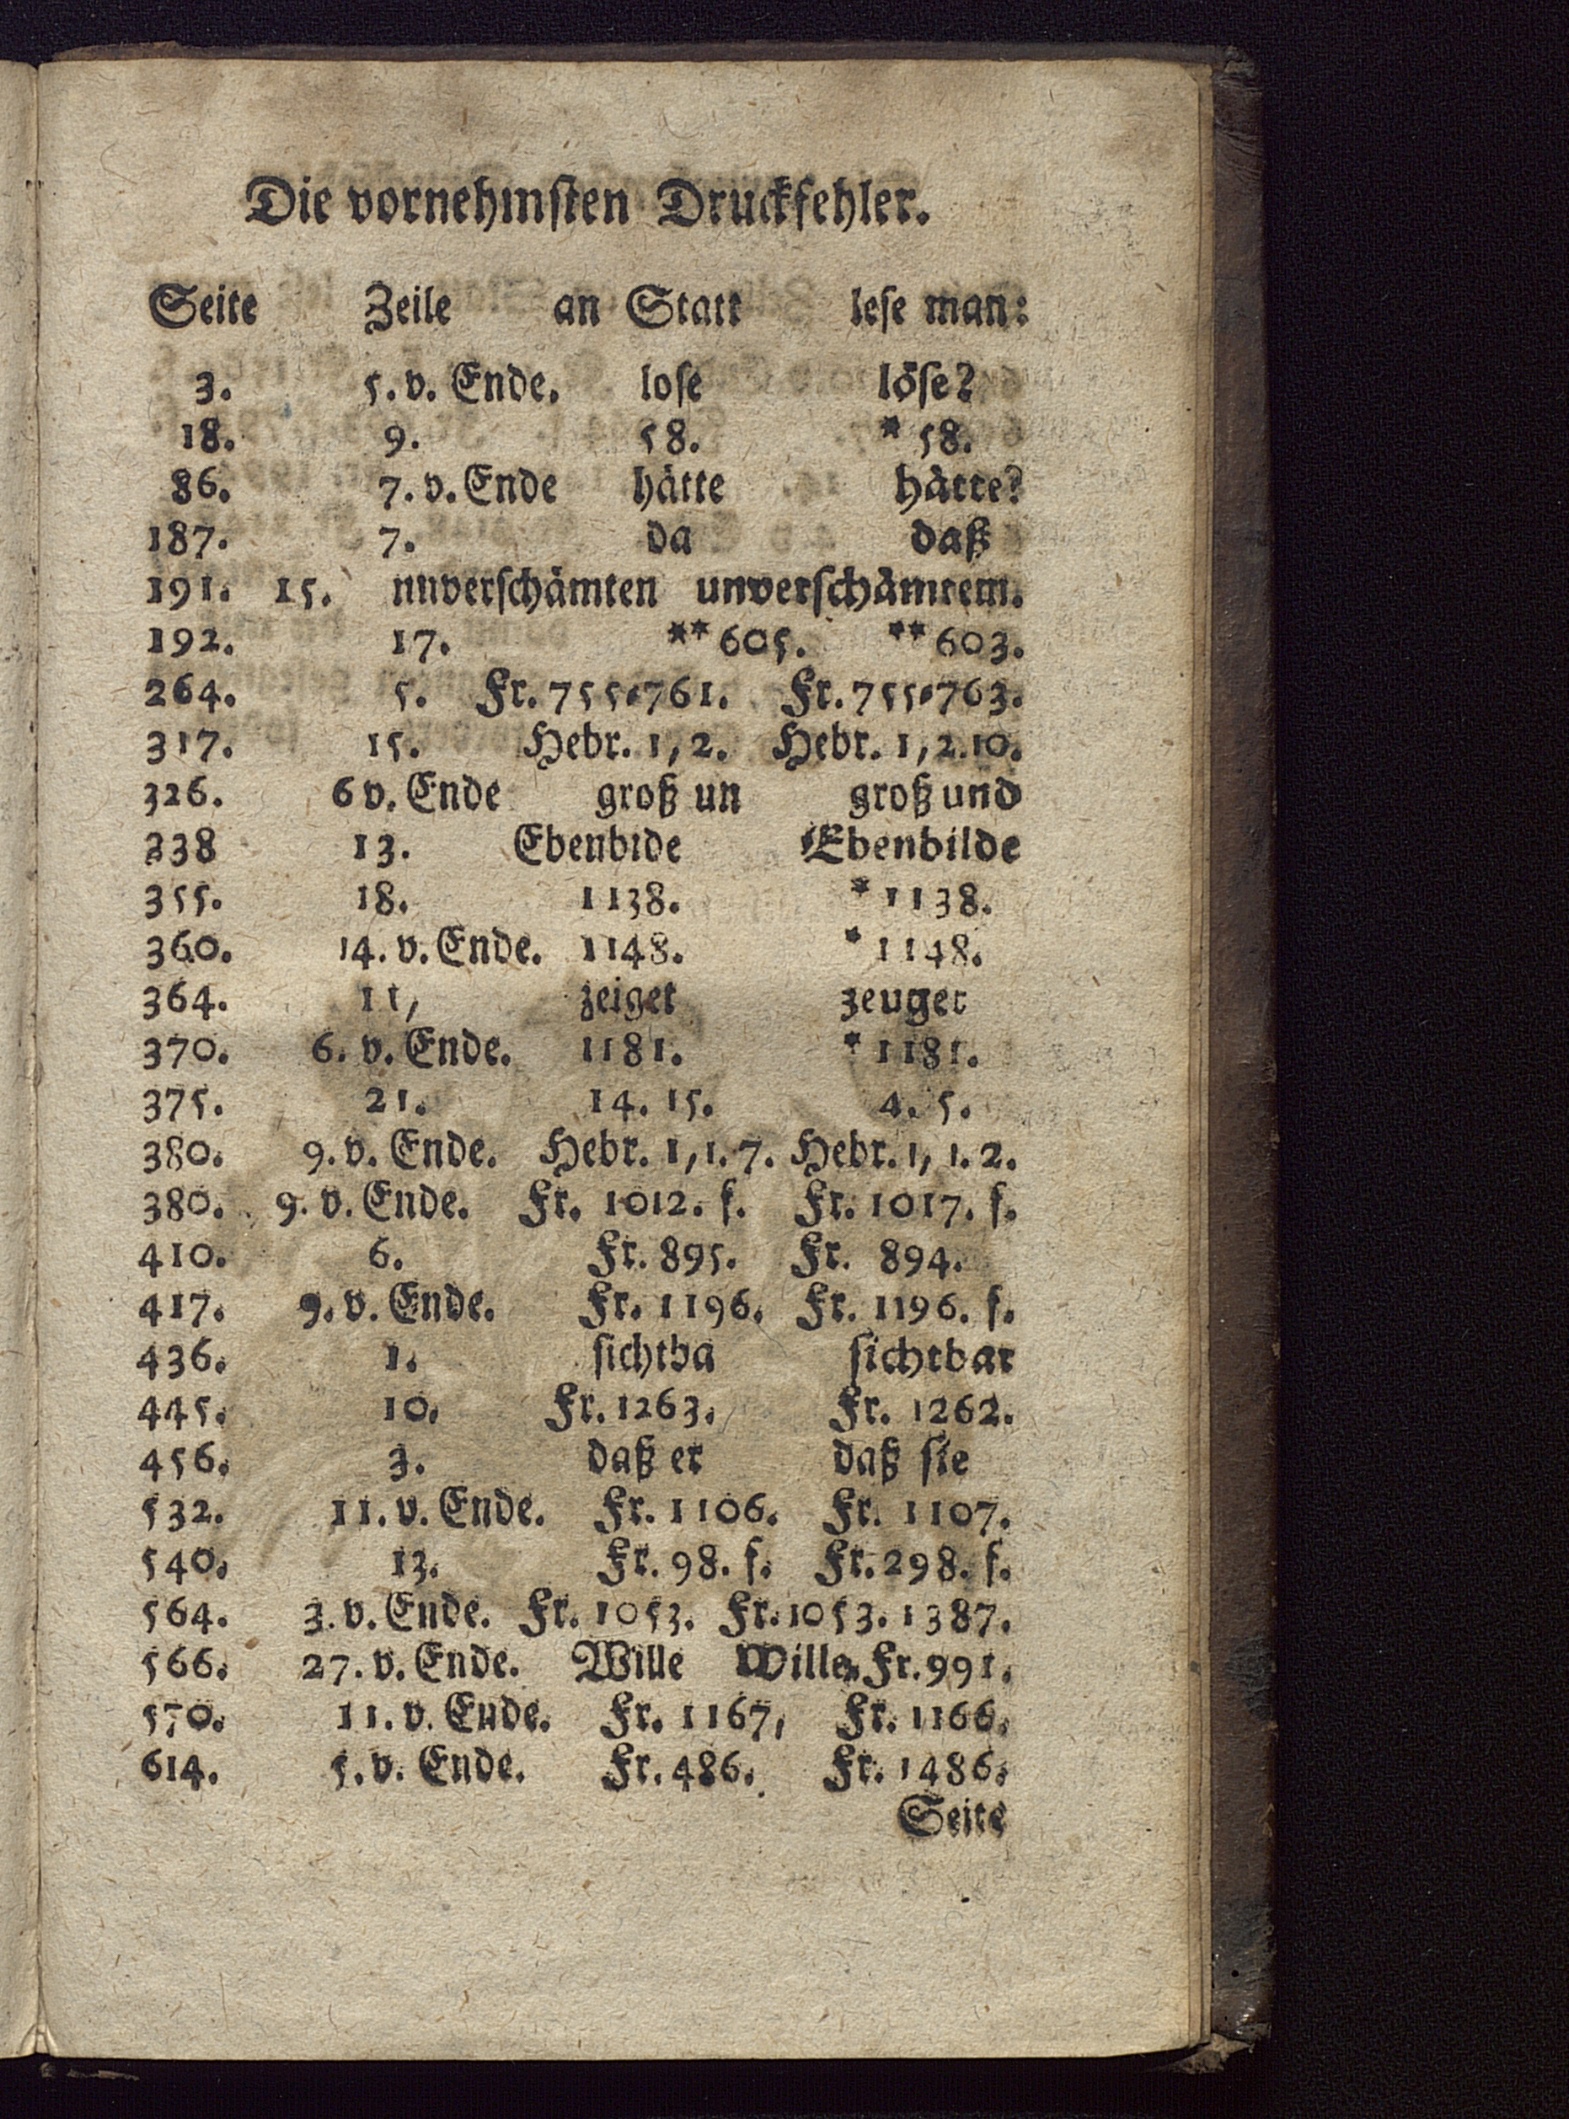 Die vornehmsten Druckfehler.
Seite Zeile an Statt lese man:
3. 5. v. Ende. lose löse?
18. 9. 58. * 58.
86. 7. v. Ende hätte hätte?
187. 7. da daß
191. 15. nnverschämten unverschämtem.
192. 17. ** 605. ** 603.
264. 5. Fr. 755-761. Fr. 755-763.
317. 15. Hebr. 1, 2. Hebr. 1, 2. 10.
326. 6 v. Ende groß un groß und
338 13. Ebenbide Ebenbilde
355. 18. 1138. * 1138.
360. 14. v. Ende. 1148. * 1148.
364. 11, zeiget zeuget
370. 6. v. Ende. 1181. * 1181.
375. 21. 14. 15. 4. 5.
380. 9. v. Ende. Hebr. 1, 1. 7. Hebr. 1, 1. 2.
380. 9. v. Ende. Fr. 1012. f. Fr. 1017. f.
410. 6. Fr. 895. Fr. 894.
417. 9. v. Ende. Fr. 1196. Fr. 1196. f.
436. 1. sichtba sichtbar
445. 10. Fr. 1263. Fr. 1262.
456. 3. daß er daß sie
532. 11. v. Ende. Fr. 1106. Fr. 1107.
540. 13. Fr. 98. f. Fr. 298. f.
564. 3. v. Ende. Fr. 1053. Fr. 1053. 1387.
566. 27. v. Ende. Wille Wille, Fr. 991.
570. 11. v. Ende. Fr. 1167, Fr. 1166.
614. 5. v. Ende. Fr. 486. Fr. 1486.
Seite